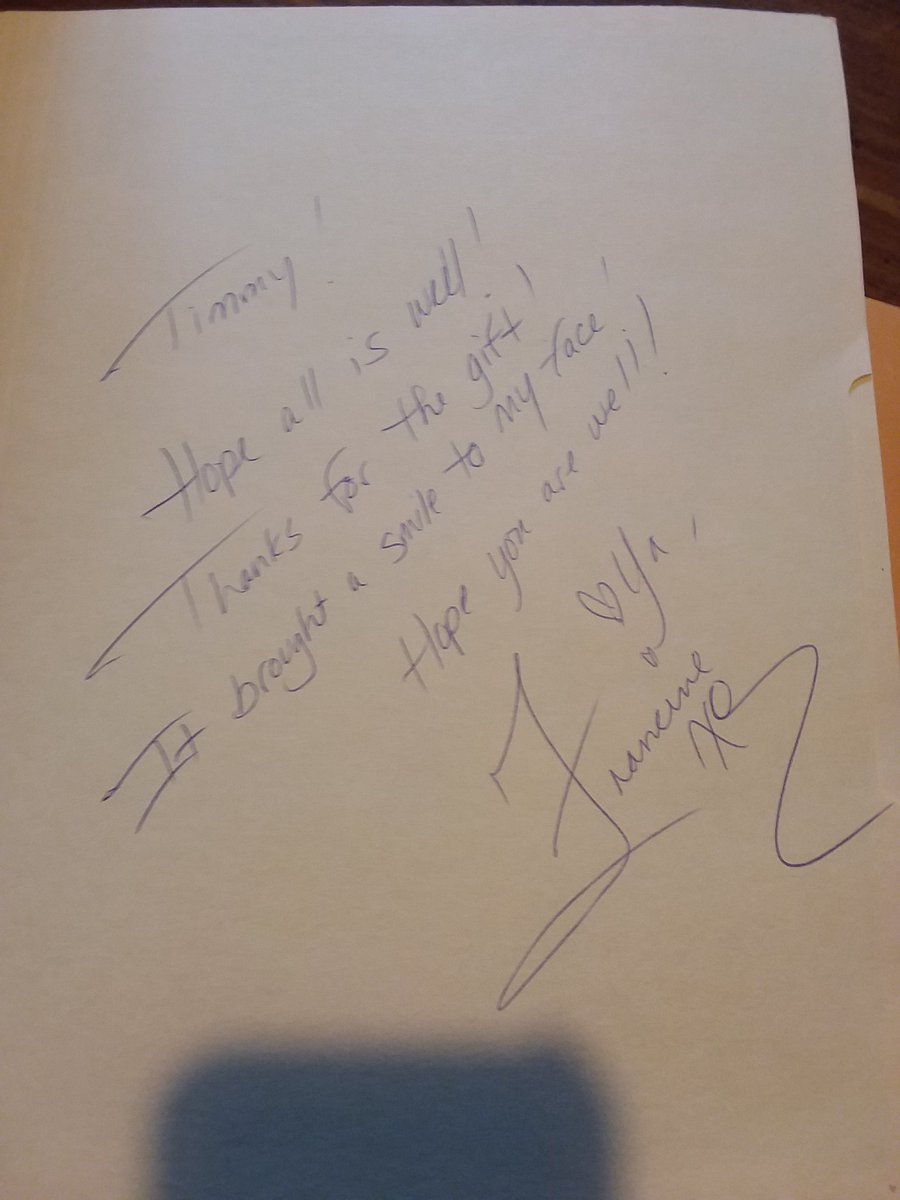 Timmy!
Hope all is well!
Thanks for the gift!
It brought a smile to my face!
Hope you are well!!
♡ Ya,
Francine
XO